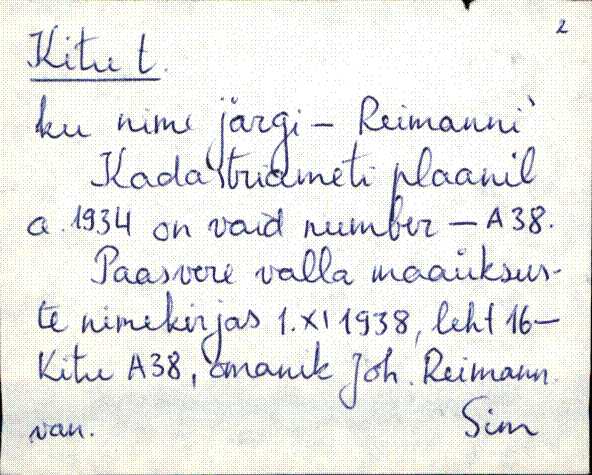 2
Kitu t.
ku nime järgi – Reimanni
Kadastriameti plaanil
a. 1934 on vaid number – A 38.
Paasvere valla maaüksus-
te nimekirjas 1. XI 1938, leht 16 –
Kitu A38, omanik Joh. Reimann.
van. Sim